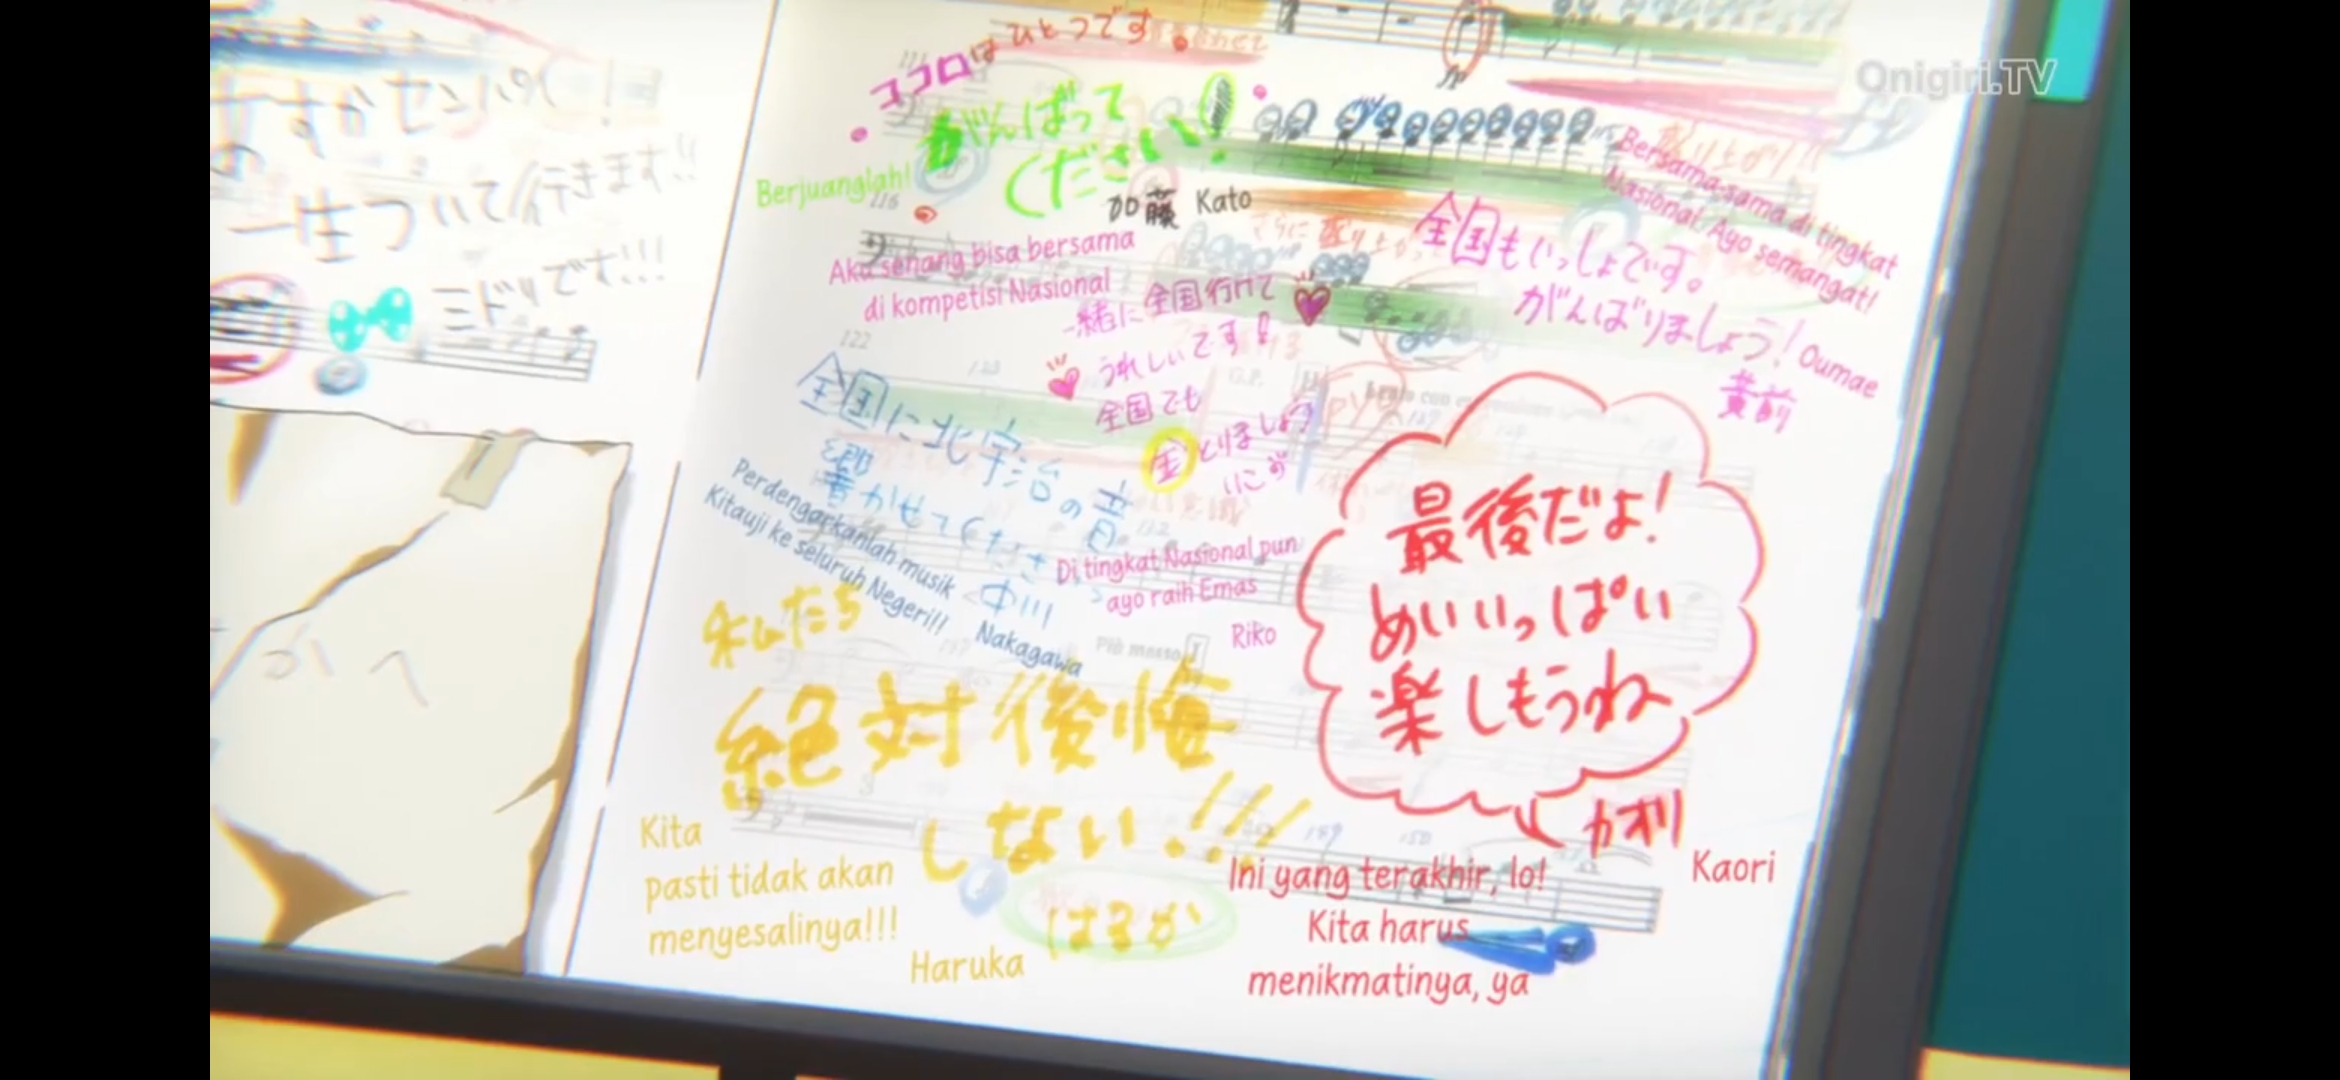 Onigiri.TV
あすかセンパイ!
一生ついて行きます!!
ミドリです!!!
ココロはひとつです。
がんばって
ください!
Berjuanglah!
加藤 Kato
116
Bersama-sama di tingkat
Nasional. Ayo semangat!
全国もいっしょです。
がんばりましょう!
Oumae
黄前
Aku senang bisa bersama
di kompetisi Nasional
一緒に全国行けて
うれしいです!
全国でも
金とりましょう
りこ
122
123
G.P.
全国に北宇治の音
響かせてください
中川
Perdengarkanlah musik
Kitauji ke seluruh Negeri!!
Nakagawa
Di tingkat Nasional pun
ayo raih Emas
Riko
最後だよ!
めいいっぱい
楽しもうね
カオリ
Kaori
Ini yang terakhir, lo!
Kita harus
menikmatinya, ya
Più mosso
私たち
絶対後悔
しない!!!
はるか
Kita
pasti tidak akan
menyesalinya!!!
Haruka